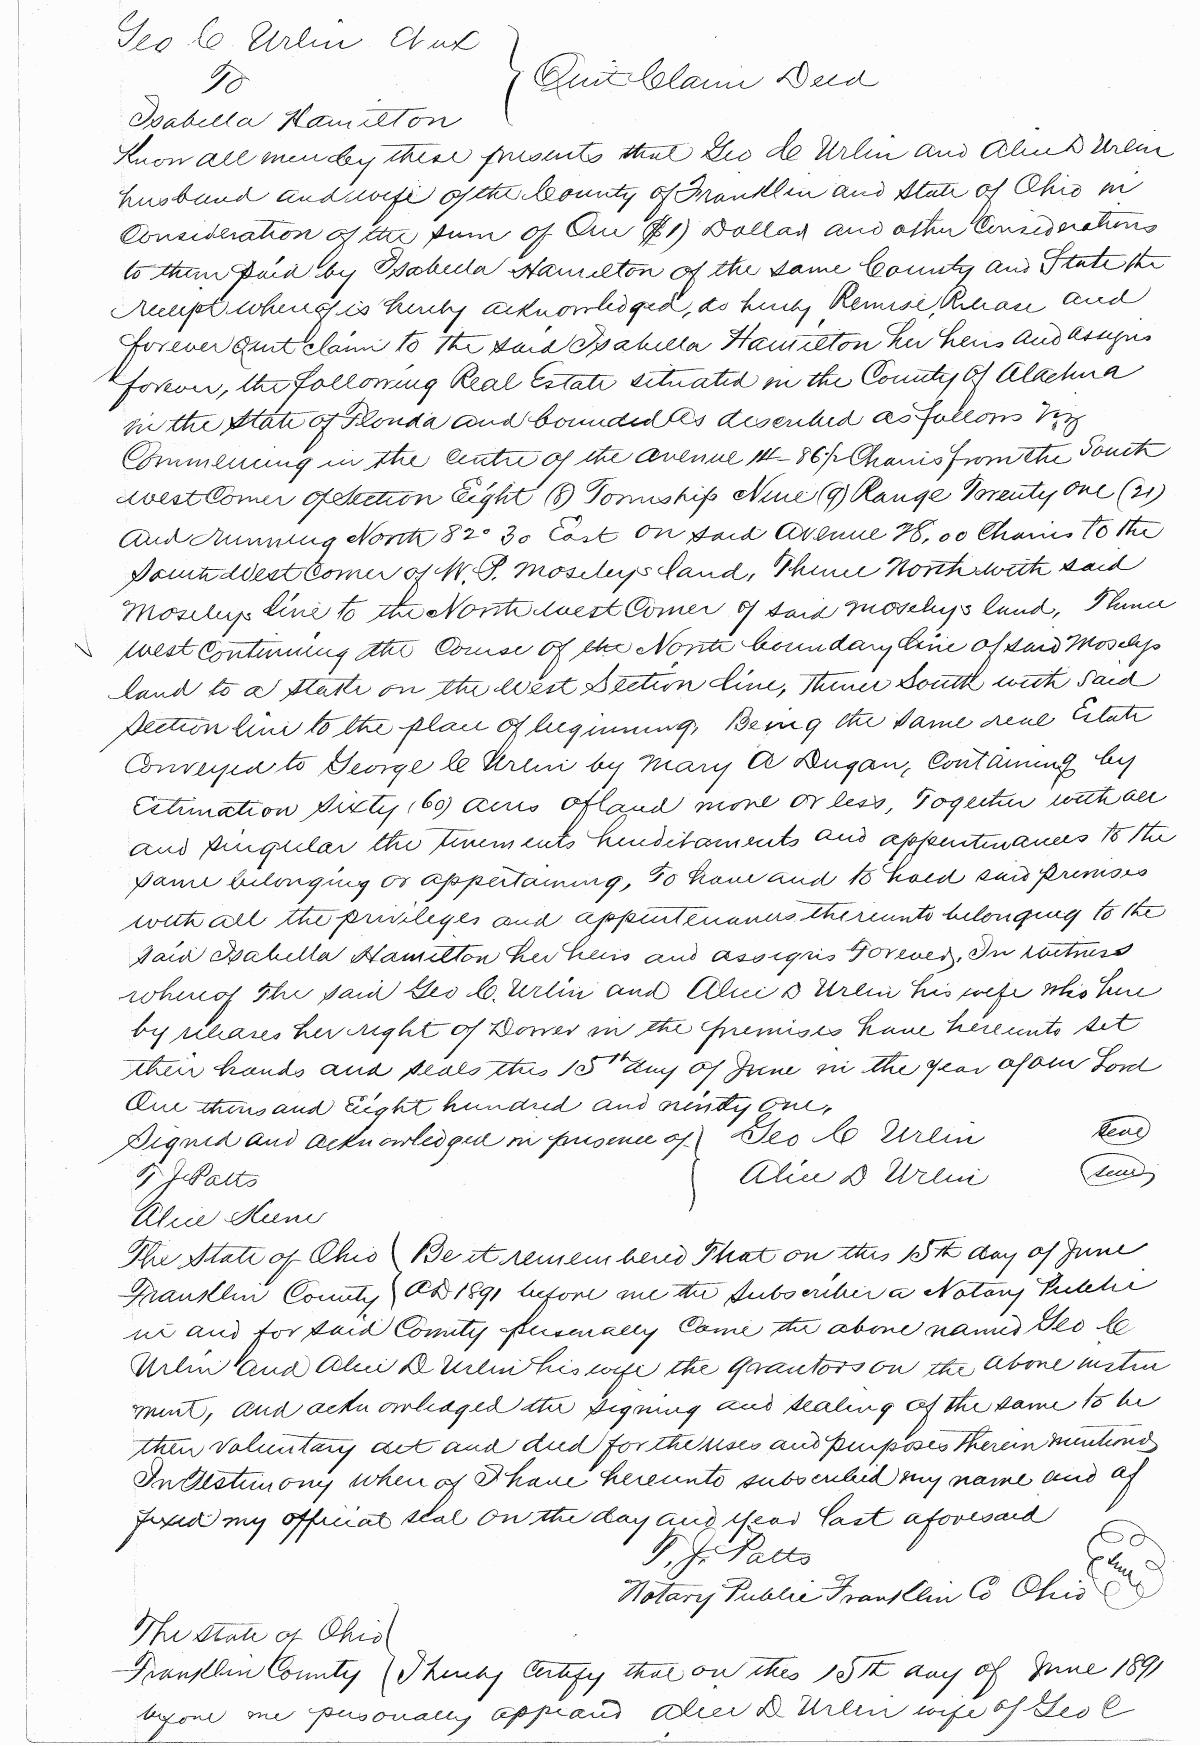 Geo C Urlin et ux
To
Quit Claim Deed
Isabella Hamilton
Know all men by these presents that Geo C Urlin and Alice D Urlin
husband and wife of the County of Franklin and State of Ohio in
Consideration of the sum of One ($1) Dollar and other Considerations
to them paid by Isabella Hamilton of the same County and State the
receipt whereof is hereby acknowledged, do hereby Remise, Release and
forever quit claim to the said Isabella Hamilton her heirs and assigns
forever, the following Real Estate situated in the County of Alachua
in the State of Florida and bounded as described as follows viz
Commencing in the centre of the avenue 14 86½ Chains from the South
west Corner of Section Eight (8) Township Nine (9) Range Twenty one (21)
and running North 82° 30 East on said Avenue 28.00 Chains to the
South West Corner of W. P. Moselys land, Thence North with said
Moselys line to the North west Corner of said Moselys land, Thence
west Continuing the Course of the North boundary line of said Moselys
land to a stake on the West Section line, thence South with said
Section line to the place of beginning, Being the same real Estate
Conveyed to George C Urlin by Mary A Dugan, Containing by
Estimation Sixty (60) acres of land more or less, Together with all
and singular the tenements hereditaments and appurtenances to the
same belonging or appertaining, To have and to hold said premises
with all the privileges and appurtenances thereunto belonging to the
said Isabella Hamilton her heirs and assigns Forever, In witness
whereof the said Geo C. Urlin and Alice D Urlin his wife who here
by releases her right of Dower in the premises have hereunto set
their hands and seals this 15th day of June in the year of our Lord
One thousand Eight hundred and ninety one,
Signed and acknowledged in presence of Geo C Urlin seal
T J Patts Alice D Urlin seal
Alice
The State of Ohio Be it remembered That on this 15th day of June
Franklin County AD 1891 before me the Subscriber a Notary Public
in and for said County personally Came the above named Geo C
Urlin and Alice D Urlin his wife the grantors on the above instru
ment, and acknowledged the signing and sealing of the same to be
their voluntary act and deed for the uses and purposes therein mentioned
In Testimony where of I have hereunto subscribed my name and af
fixed my official seal on the day and year last aforesaid
T. J. Patts
Notary Public Franklin Co Ohio
The State of Ohio
Franklin County I hereby Certify that on this 15th day of June 1891
before me personally appeared Alice D Urlin wife of Geo C